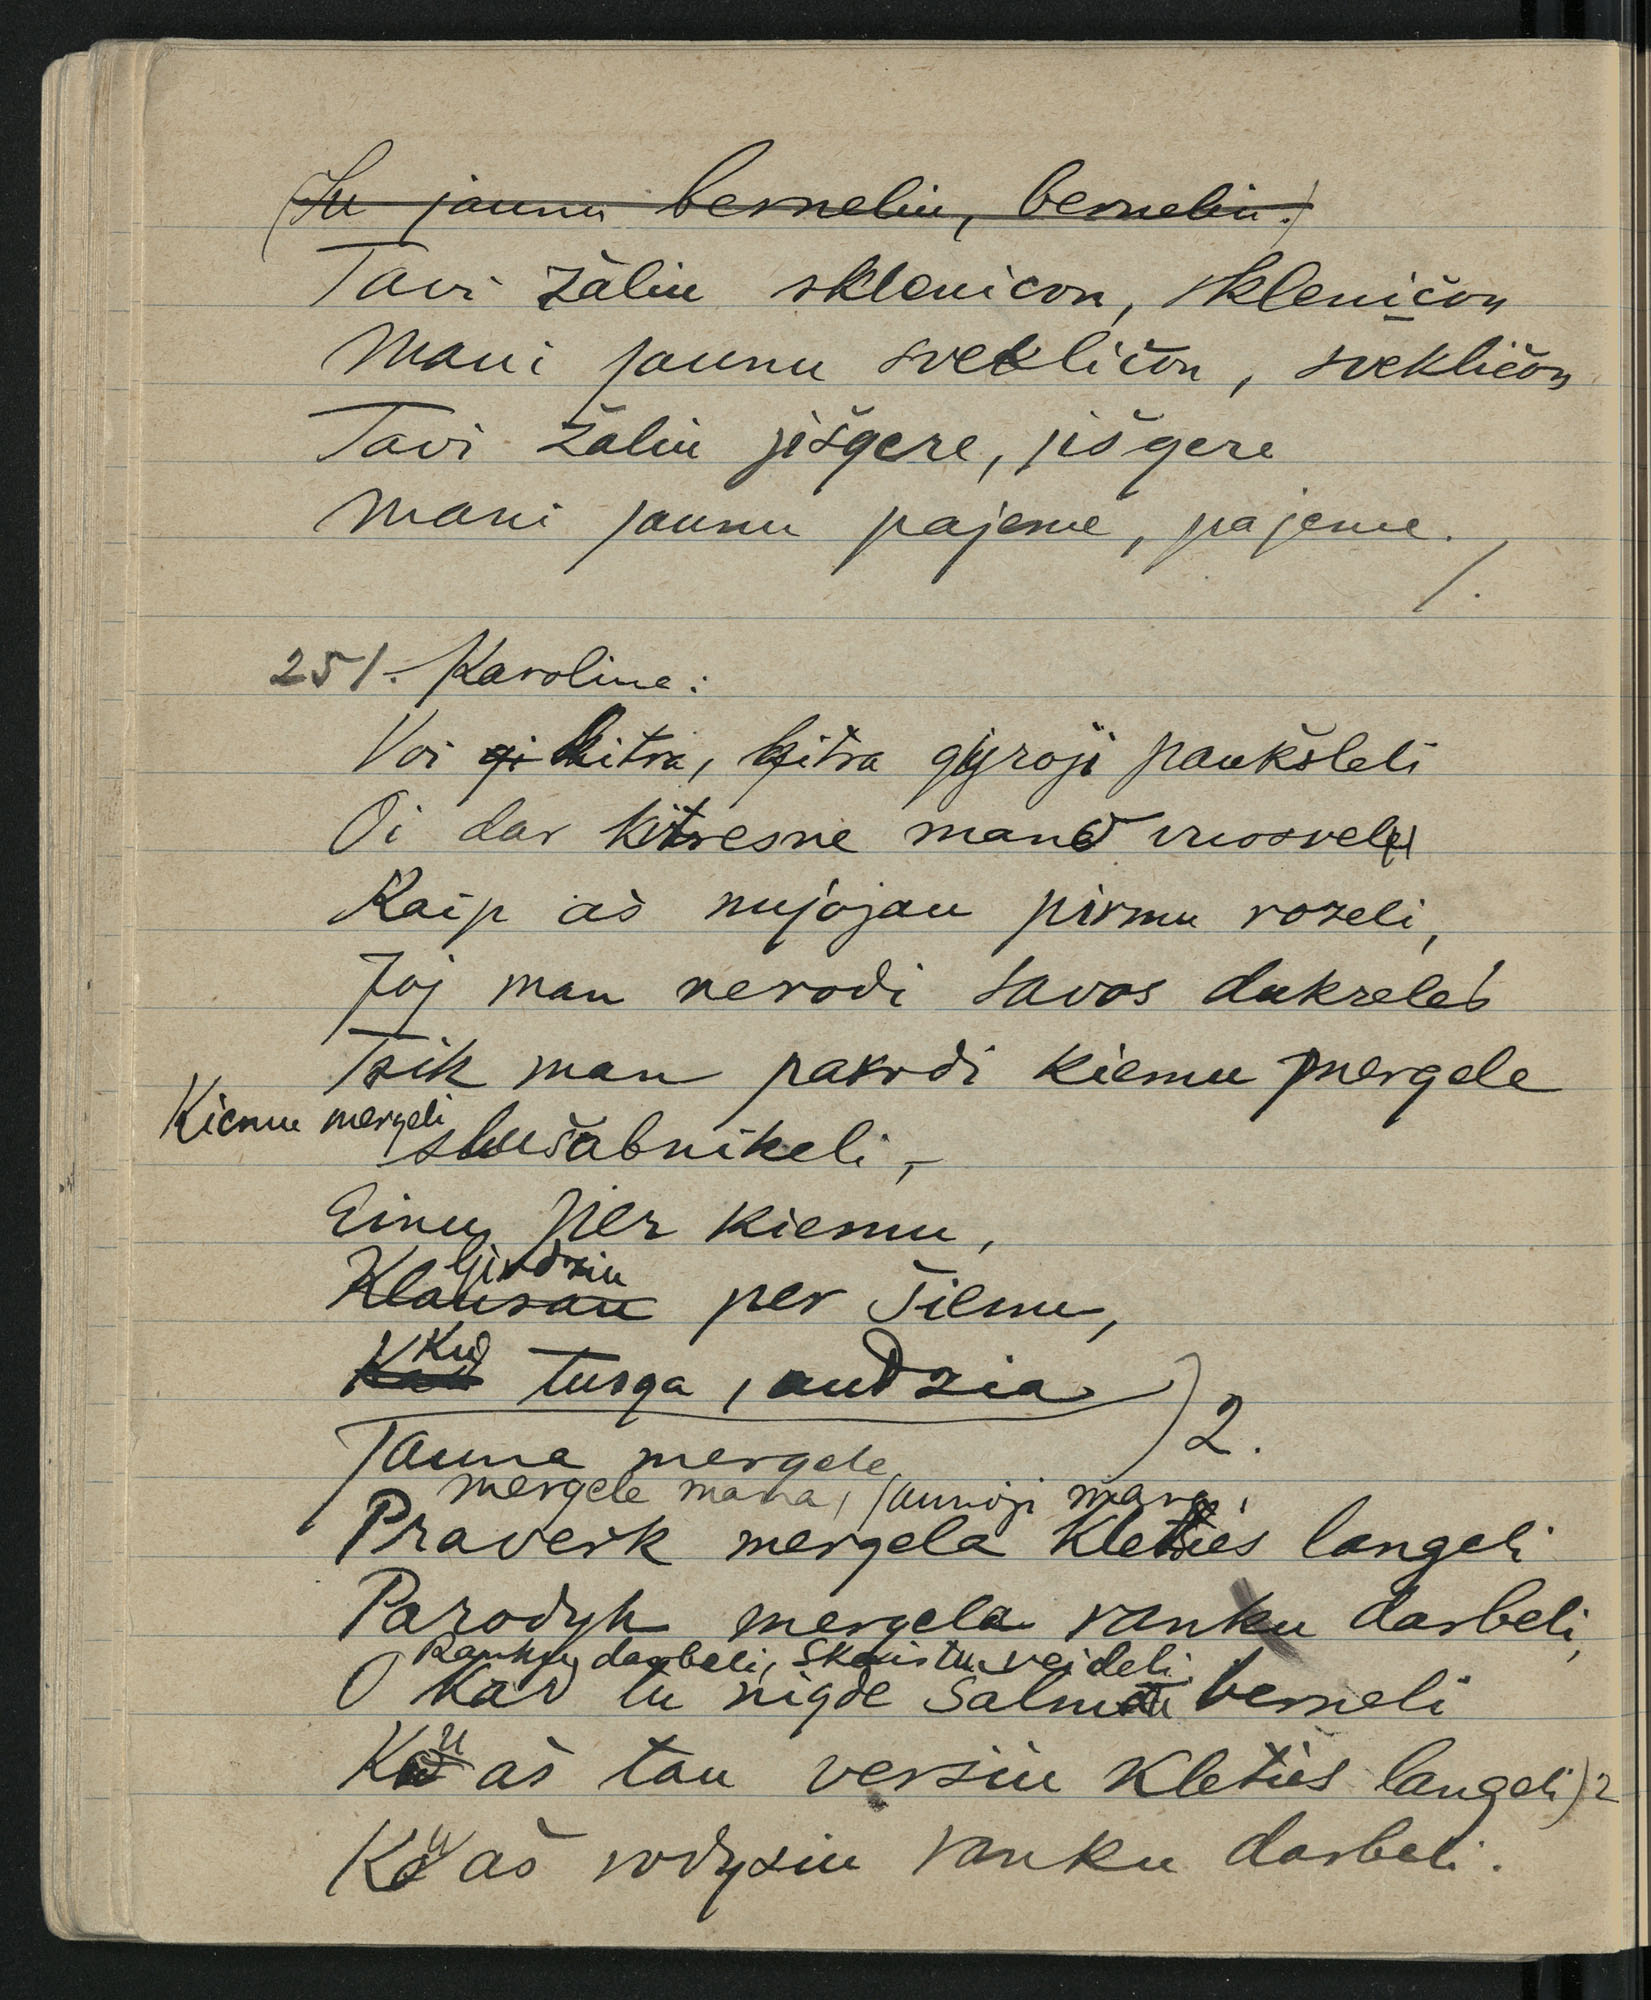 (Su jaunu berneliu, berneliu.)
Tavi žaliu sklenicon, skleničon
Mani jaunu svekličon, svekličon
Tavi žaliu jišgere, jišgere
Mani jaunu pajeme, pajeme.
/.
251. Karoline:
Voi gi kitra, kitra gyroji paukšteli
Oi dar kitresne mano uuosvele
Kaip aš nujojau pirmu rozeli,
Joj man nerodi savos dukreles
Tsik man parodi kiemu mergele
Kiemu mergeli
slušabnikeli,
Einu per kiemu,
Girdziu
Klausau per šilmu,
Kud
Kad turga, audzia
Jauna mergele )2.
mergele mana, jaunoji mana,
Praverk mergela kleties langeli
Parodyk mergela ranku darbeli,
Ranku darbeli, skaistu veideli.
O kad tu nigde šalmu berneli
Ku aš tau versiu kletiės langeli)2
Ku aš rodysiu ranku darbeli.